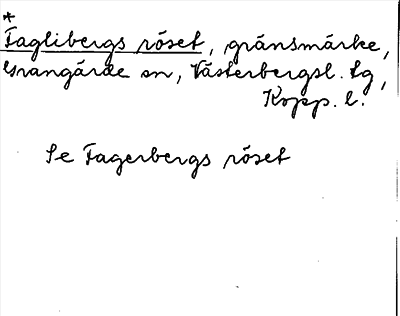 *
Faglibergs röset, gränsmärke,
Grangärde sn, Västerbergsl. tg,
Kopp. l.
Se Fagerbergs röset